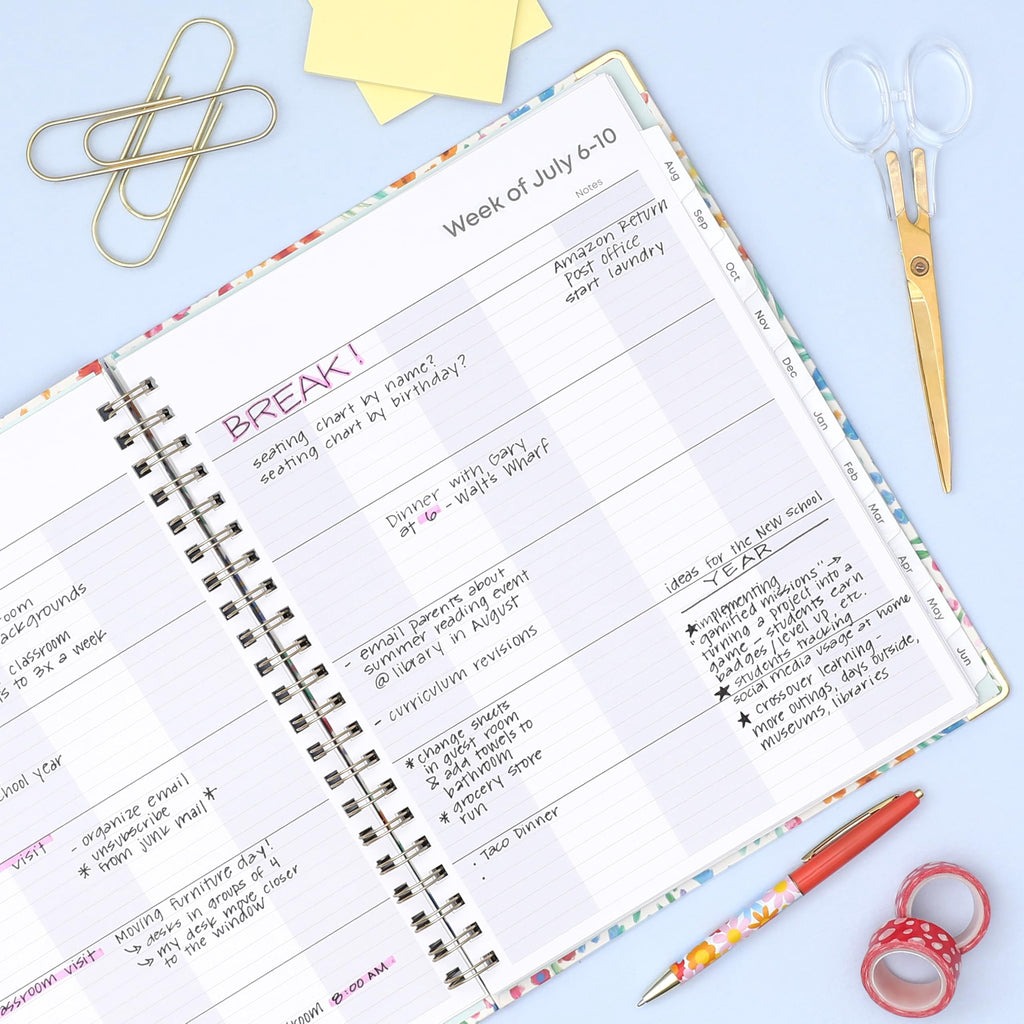 Week of July 6-10
Notes
Amazon Return
Post Office
start laundry
BREAK!
seating chart by name?
seating chart by birthday?
Dinner with Gary
at 6 - Walt's Wharf
ideas for the New School
YEAR
★implementing
"gamified missions" →
turning a project into a
game - students earn
badges / level up, etc.
★ students tracking
social media usage at home
★ crossover learning -
more outings, days outside,
museums, libraries
- email parents about
summer reading event
@ library in August
- curriculum revisions
*change sheets
in guest room
& add towels to
bathroom
* grocery store
run
· Taco Dinner
·
Aug
Sep
Oct
Nov
Dec
Jan
Feb
Mar
Apr
May
Jun
oom
ackgrounds
classroom
s to 3x a week
hool year
visit
- organize email
* unsubscribe
from junk mail *
Moving furniture day!
↳ desks in groups of 4
↳ my desk move closer
to the window
assroom visit
room 8:00 AM